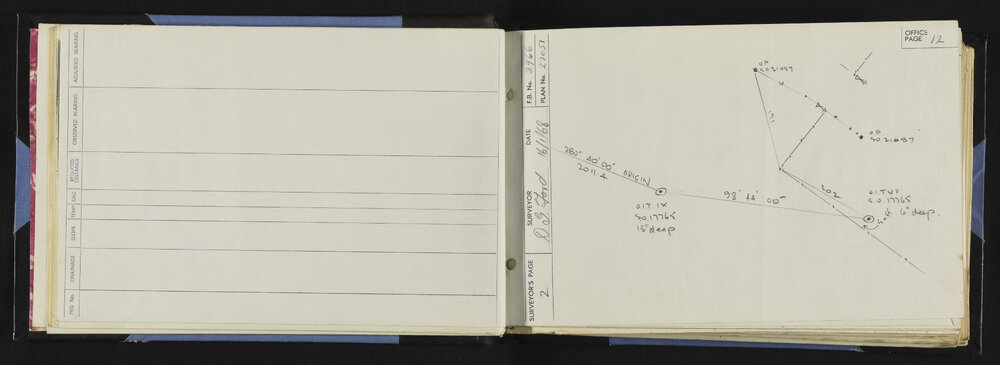 PEG. No.
CHAINAGE
SLOPE
TEMP
SAG
REDUCED DISTANCE
OBSERVED BEARING
ADJUSTED BEARING
SURVEYOR'S PAGE
2
SURVEYOR
D G Ford
DATE
16/1/68
F.B. No. 3966
PLAN No. 27051
OFFICE
PAGE 12
O.P.
S.O.21087
O.P.
S.O.21087
280° 40' 00"
2011.4
ORIGIN
O.I.T. IX
S.O.17765
15" deep
98° 44' 00"
202
O.I.T VII
S.O.17765
6" deep.